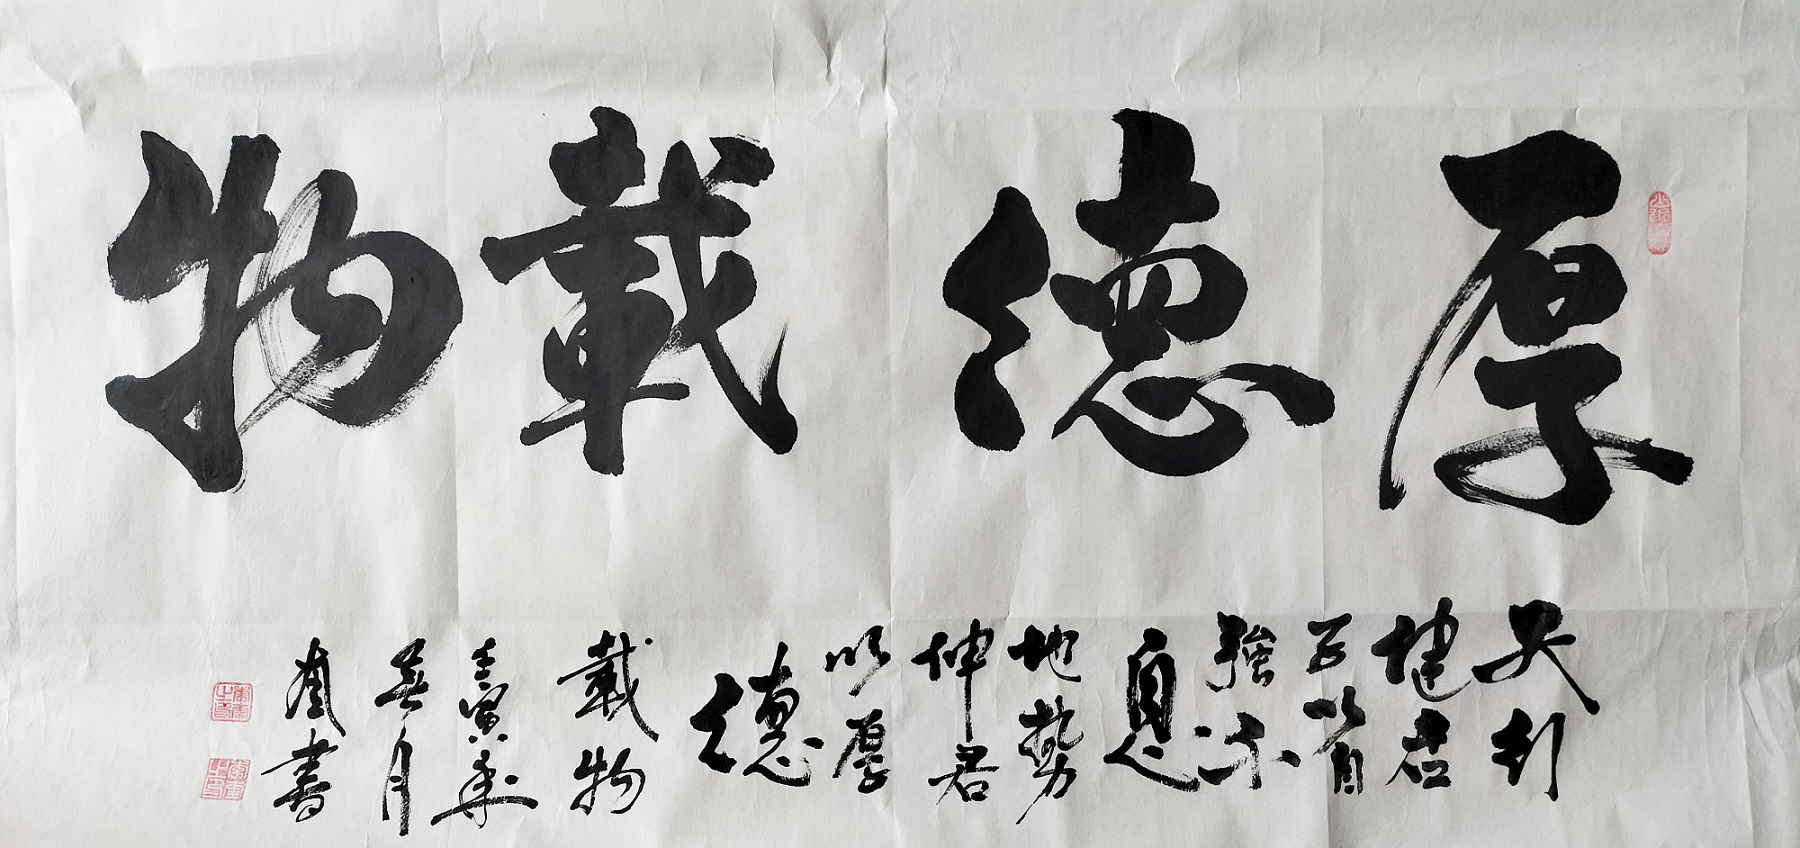 厚德載物
天行
健君
子以自
強不
息
地势
坤君
以厚
德
載物
壬寅年
春月
書